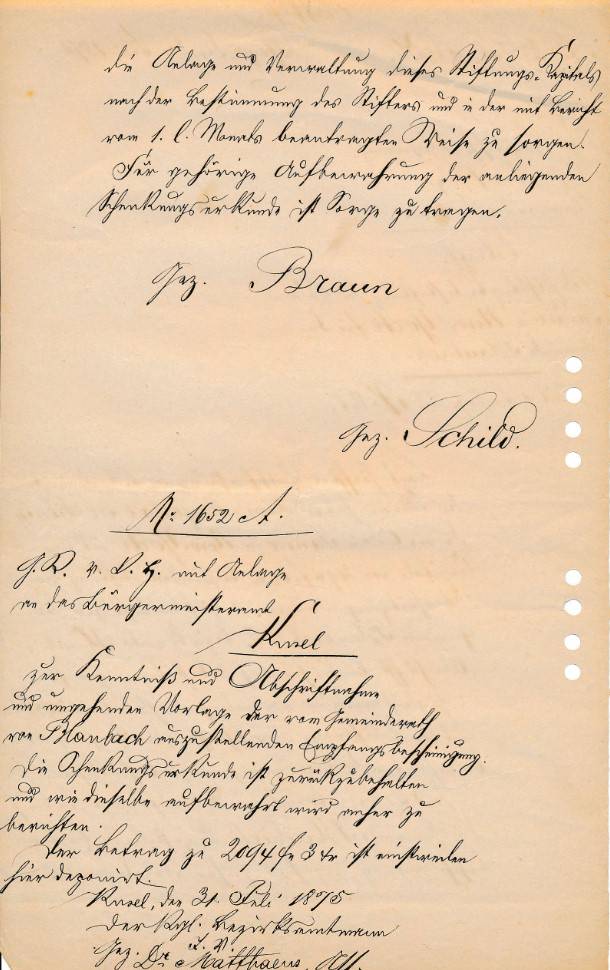 die Anlage und Verwaltung dieses Stiftungs-Kapitals
nach der Bestimmung des Stifters und in der mit Bericht
vom 1. l. Monats beantragten Weise zu sorgen.
Für gehörige Aufbewahrung der anliegenden
Schenkungsurkunde ist Sorge zu tragen.
Gez. Braun
Gez. Schild.
Nr. 1652 A.
G. R. v. S. H. mit Anlage
an das Bürgermeisteramt
Kusel
zur Kenntniß und Abschriftnahme
und umgehenden Vorlage der vom Gemeinderath
von auszustellenden Empfangsbescheinigung.
Die Schenkungsurkunde ist zurückzubehalten
und wie dieselbe aufbewahrt wird anher zu
berichten.
Der Betrag zu 2094 f 3 kr ist einstweilen
hier deponirt.
Kusel, den 31. Juli 1875
Der Kgl. Bezirksamtmann
J. V.
Gez. Dr. Matthaeus